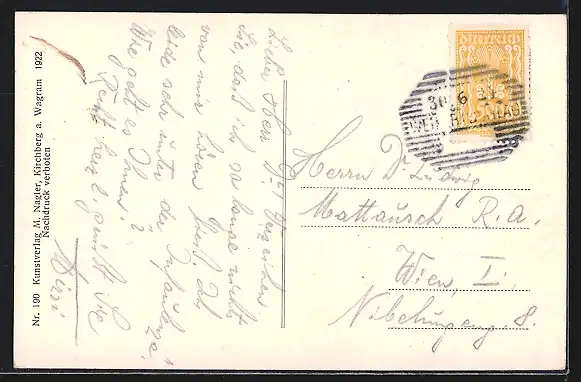 Lieber Herr Dr! Verzeihen
Sie, daß ich so lange nichts
von mir hören ließ. Ich
leide sehr unter der Influenza!
Wie geht es Ihnen?
Recht herzl. grüßt Sie
Mizzi
Nr. 190 Kunstverlag M. Nagler, Kirchberg a. Wagram 1922
Nachdruck verboten
Österreich
30 6
Herrn Dr. Ludwig
Mattausch R. A.
Wien, I.
Nibelungeng. 8.